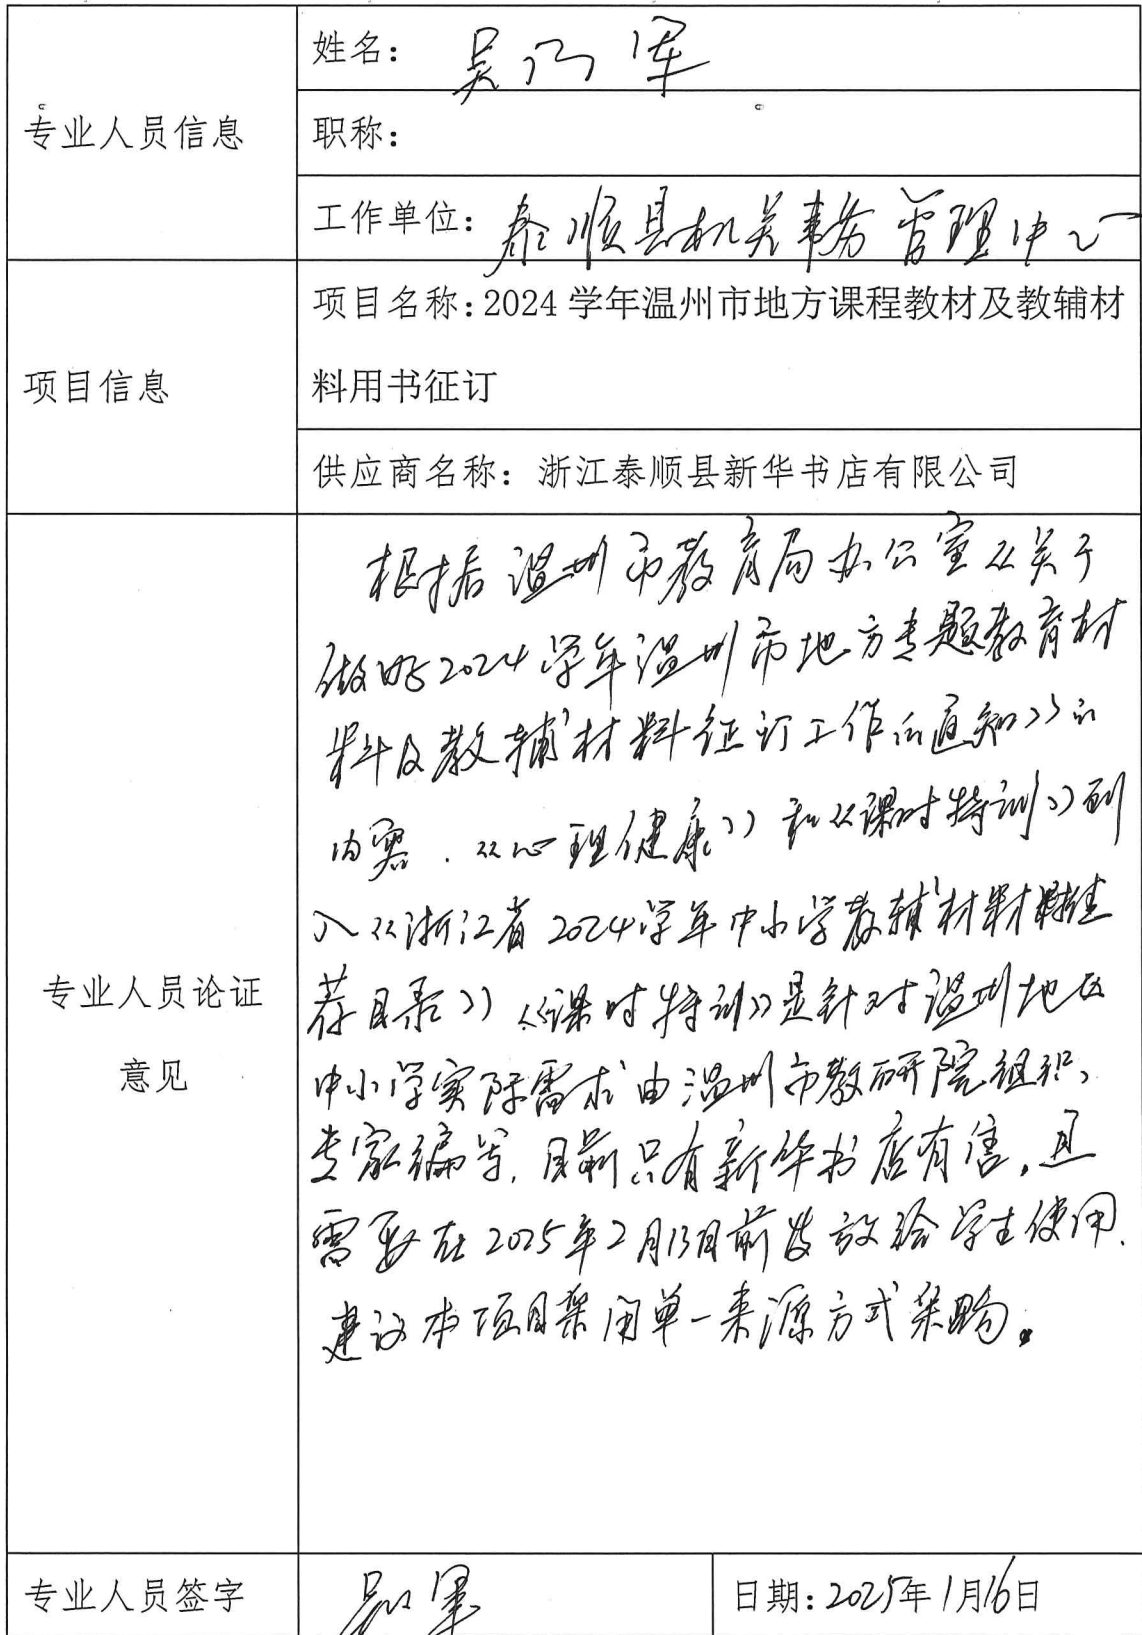 姓名：吴 军
专业人员信息
职称：
工作单位：泰顺县机关事务管理中心
项目名称：2024 学年温州市地方课程教材及教辅材
项目信息
料用书征订
供应商名称：浙江泰顺县新华书店有限公司
根据温州市教育局办公室《关于
做好2024学年温州市地方专题教育材
料及教辅材料征订工作的通知》的
内容，《心理健康》和《课时特训》列
入《浙江省2024学年中小学教辅材料推
荐目录》《课时特训》是针对温州地区
专业人员论证
意见
中小学实际需求由温州市教研院组织
专家编写，目前只有新华书店有售，且
需要在2025年2月13日前发放给学生使用.
建议本项目采用单一来源方式采购。
专业人员签字
吴 军
日期：2025年1月16日